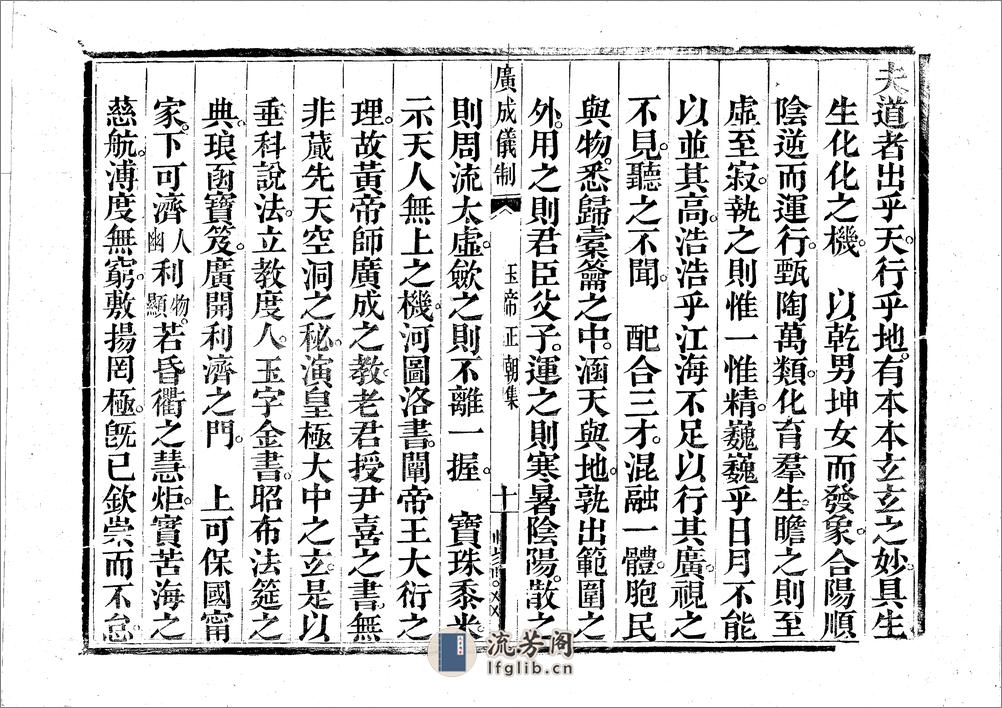 夫道者出乎天。行乎地。有本本玄玄之妙。具生
生化化之機　以乾男坤女而發象。合陽順
陰逆而運行。甄陶萬類。化育羣生。瞻之則至
虛至寂。執之則惟一惟精。巍巍乎日月不能
以並其高。浩浩乎江海不足以行其廣。視之
不見。聽之不聞　配合三才。混融一體。胞民
與物。悉歸橐籥之中。涵天與地。孰出範圍之
外。用之則君臣父子。運之則寒暑陰陽。散之
廣成儀制　玉帝正朝集　十
則周流太虛。歛之則不離一握。　寶珠黍米。
示天人無上之機。河圖洛書。闡帝王大衍之
理。故黃帝師廣成之教。老君授尹喜之書。無
非蕆先天空洞之秘。演皇極大中之玄。是以
垂科說法。立教度人。玉字金書。昭布法筵之
典。琅函寶笈。廣開利濟之門　上可保國甯
家。下可濟人幽利物顯。若昏衢之慧炬。實苦海之
慈航。溥度無窮。敷揚罔極。旣已欽崇而不怠
流芳阁
lfglib.cn